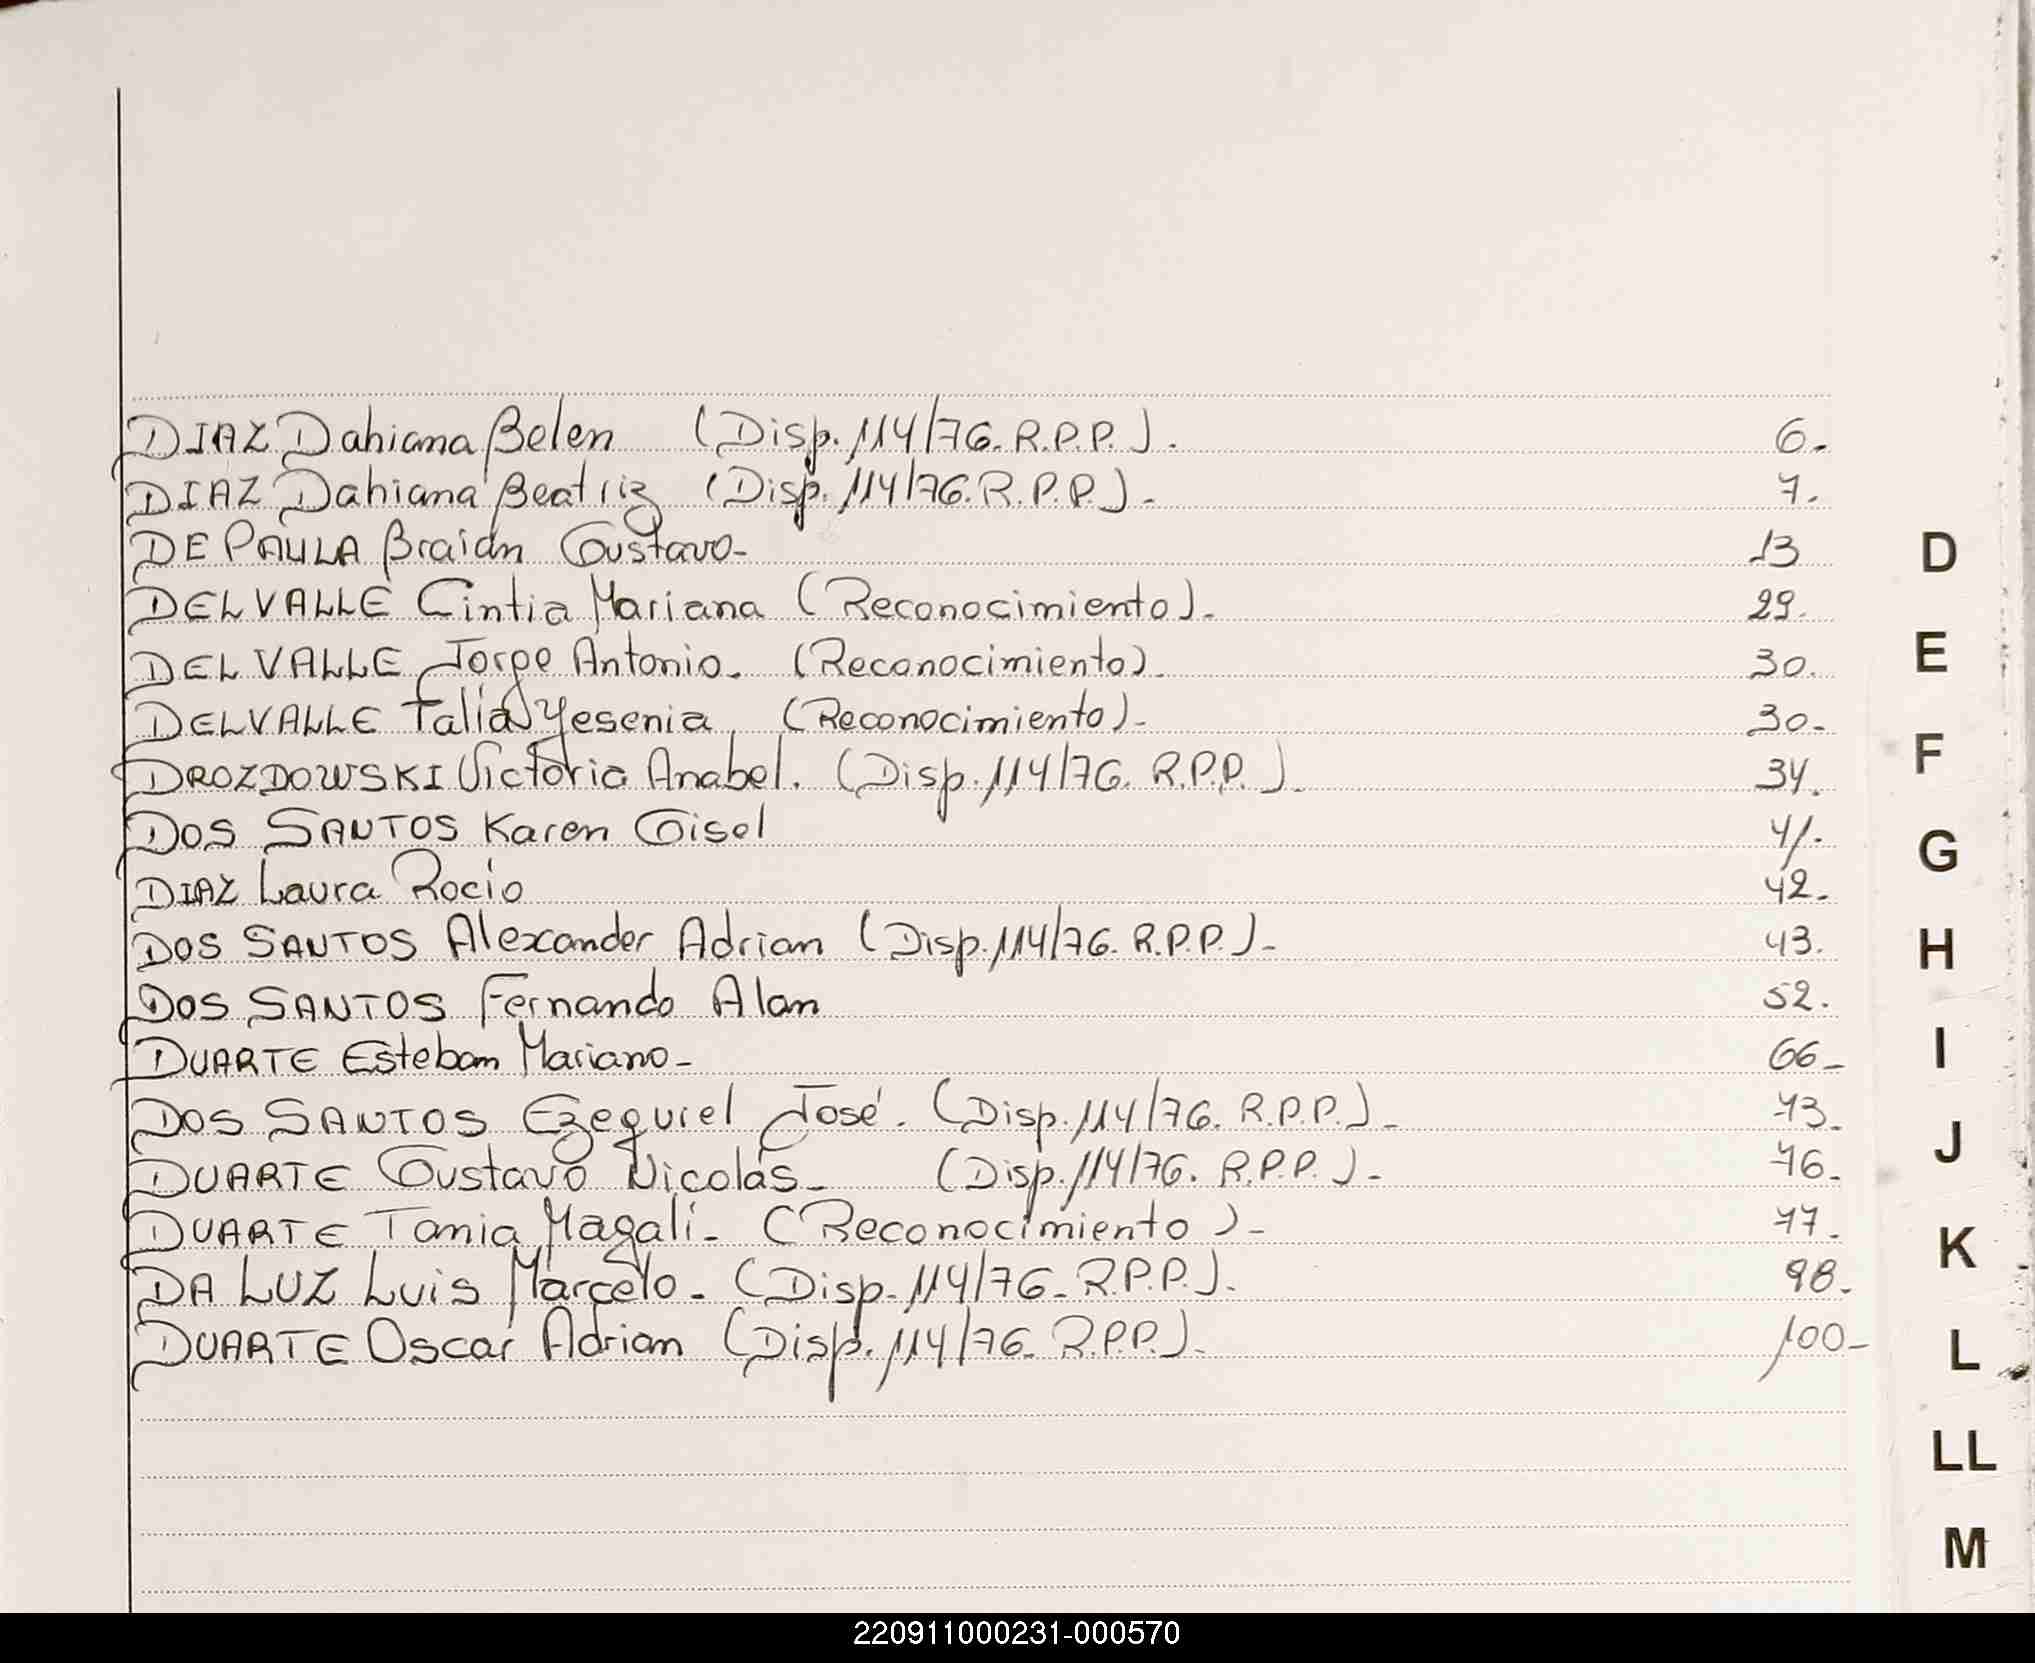 DIAZ Dahiana Belen (Disp. 114/76. R.P.P.). 6.
DIAZ Dahiana Beatriz (Disp. 114/76. R.P.P.)- 7.
DE PAULA Braian Gustavo- 13
DELVALLE Cintia Mariana (Reconocimiento).- 29.
DEL VALLE Jorge Antonio. (Reconocimiento)- 30.
DELVALLE Talia Yesenia (Reconocimiento)- 30-
DROZDOWSKI Victoria Anabel. (Disp. 114/76. R.P.P.)- 34.
DOS SANTOS Karen Gisel 41.
DIAZ Laura Rocio 42.
DOS SANTOS Alexander Adrian (Disp. 114/76. R.P.P.)- 43.
DOS SANTOS Fernando Alan 52.
DUARTE Esteban Mariano- 66-
DOS SANTOS Ezequiel José. (Disp. 114/76. R.P.P.)- 73.
DUARTE Gustavo Nicolás- (Disp. 114/76. R.P.P.)- 76.
DUARTE Tania Magalí- (Reconocimiento)- 77.
DA LUZ Luis Marcelo- (Disp. 114/76- R.P.P.)- 98.
DUARTE Oscar Adrian (Disp. 114/76. R.P.P.)- 100-
D
E
F
G
H
I
J
K
L
LL
M
220911000231-000570